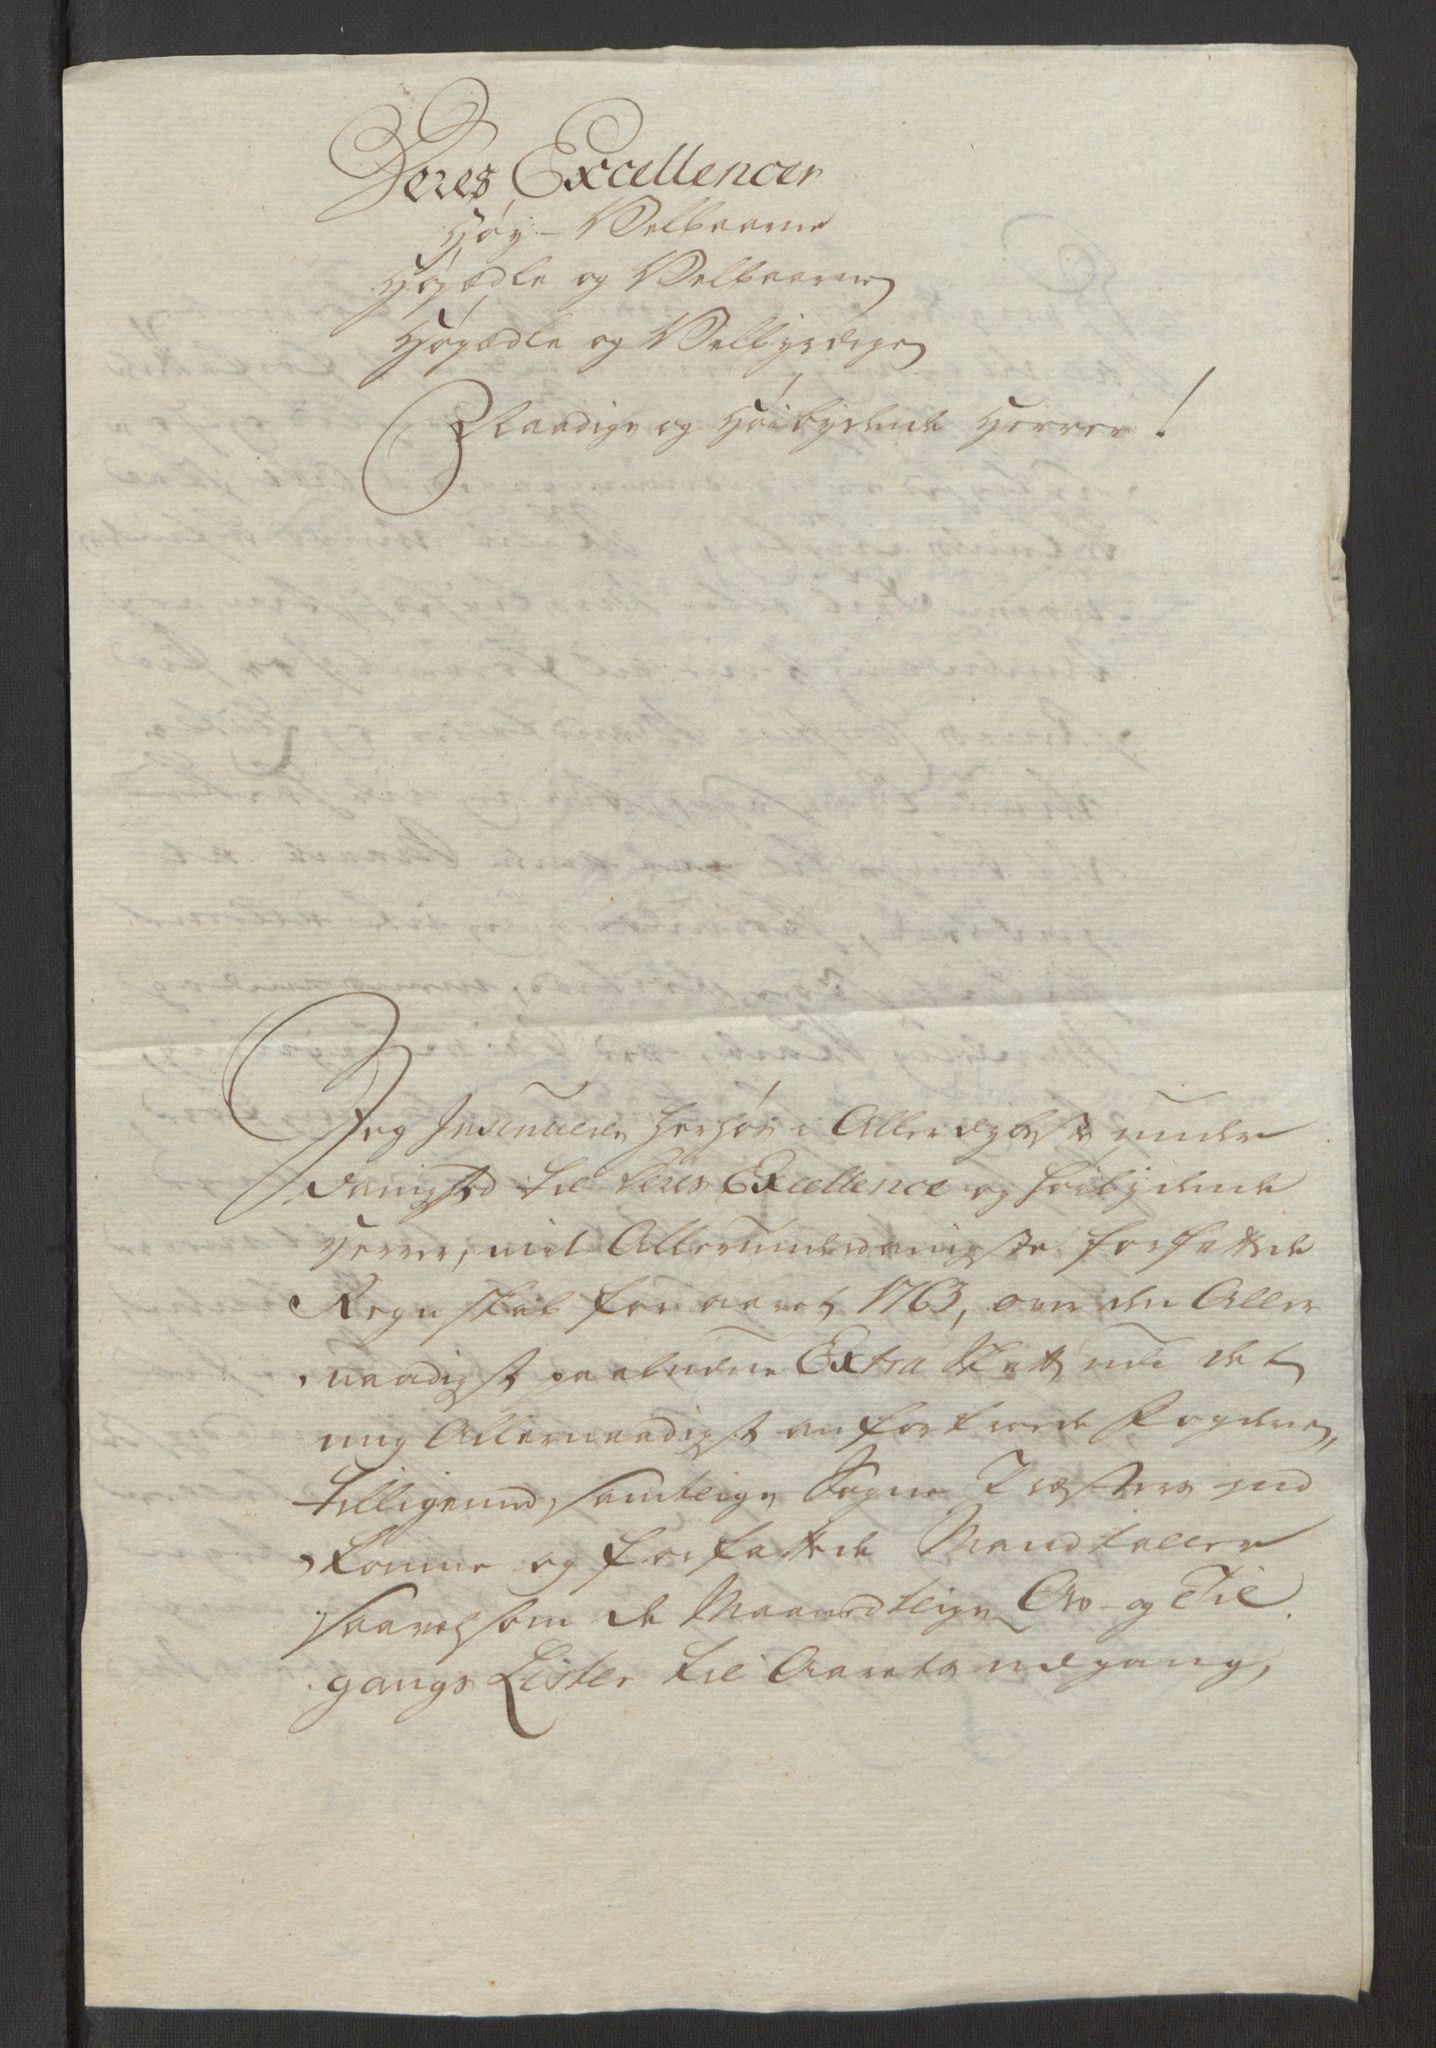 Deres Excellencer
Høy-Velbaarne
Høyædle og Velbaarne
Høyædle og Velbyrdige
Naadige og Høibydende Herrer!
Jeg Insenuerer herhos i Allerdybeste under
danighed til Deres Excellence og høibydende
Herrer, mit Allerunderdanigste forfattede
Regnskab for aaret 1763, over den Aller
naadigst paabudne Extra Skatt udi det
mig Allernaadigst anfortroede Fogderie,
tilligemed samtlige Sogne Præsters ind
komne og forfattede Mandtaller
saavelsom de Maanedtlige Av- og Til
gangs Lister til Aarets udgang,